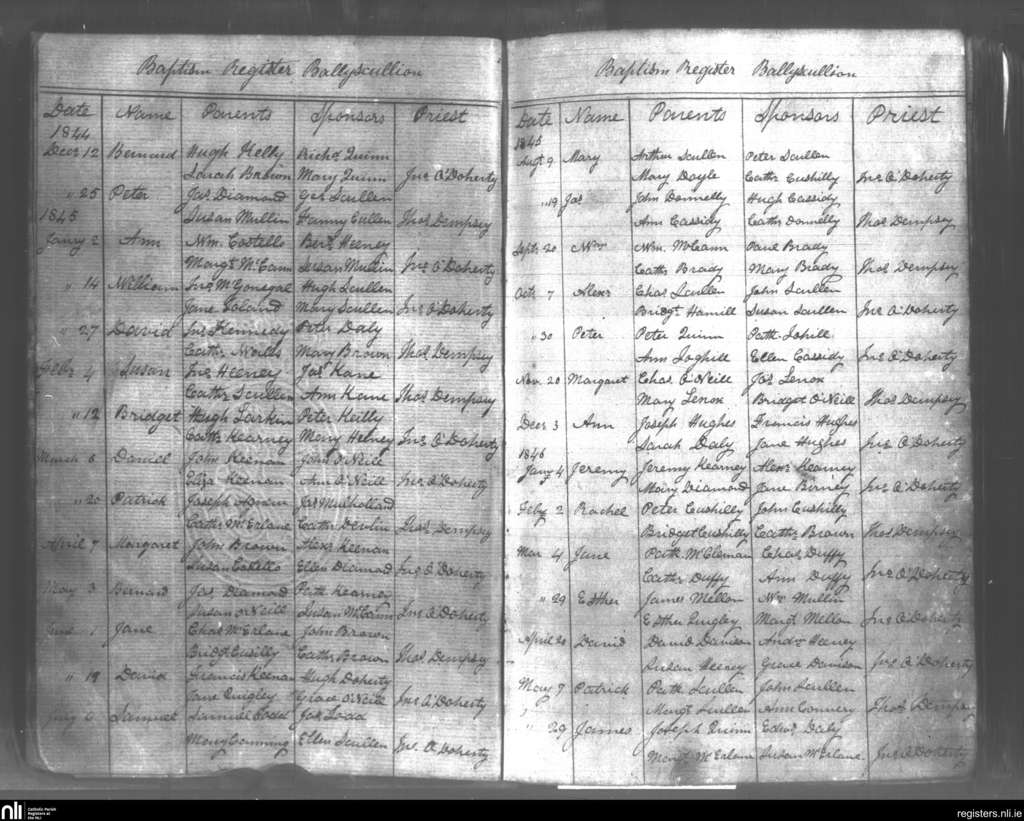 Baptism Register Ballyscullion
Date Name Parents Sponsors Priest
1844
Decr 12 Bernard Hugh Kelly Richd Quinn
Sarah Brown Mary Quinn Jno O'Doherty
" 25 Peter Jas Diamond Geo Scullen
1845 Susan Mullin Fanny Cullen Thos Dempsey
Jany 2 Ann Wm. Costello Berd Heeney
Margt McCann Susan Mullin Jno O'Doherty
" 14 William Jno McGonegal Hugh Scullen
Jane Toland Mary Scullen Jno O'Doherty
" 27 David Jno Kennedy Peter Daly
Cathr Neills Mary Brown Thos Dempsey
Feby 4 Susan Jno Heeney Jas Kane
Cathr Scullen Ann Kane Thos Dempsey
" 12 Bridget Hugh Larkin Peter Reilly
Cathr Kearney Mary Heeney Jno O'Doherty
March 6 Daniel John Keenan John O'Neill
Eliza Keenan Ann O'Neill Jno O'Doherty
" 20 Patrick Joseph Jas Mulholland
Cathr McErlane Cathr Devlin Thos Dempsey
April 7 Margaret John Brown Alexr Keenan
Susan Costello Ellen Diamond Jno O'Doherty
May 3 Bernard Jas Diamond Patk Kearney
Susan O'Neill Susan McCann Jno O'Doherty
June 1 Jane Chas McErlane John Brown
Bridgt Cusilly Cathr Brown Thos Dempsey
" 19 David Francis Keenan Hugh Doherty
Jane Quigley Grace O'Neill Jno O'Doherty
July 6 Samuel Samuel Todd Jas Todd
Mary Canning Ellen Scullen Jno O'Doherty
Baptism Register Ballyscullion
Date Name Parents Sponsors Priest
1845
Augt 9 Mary Arthur Scullen Peter Scullen
Mary Doyle Cathr Cushilly Jno O'Doherty
" 19 Jas John Donnelly Hugh Cassidy
Ann Cassidy Cathr Donnelly Thos Dempsey
Septr 20 Wm Wm. McCann Pane Brady
Cathr Brady Mary Brady Thos Dempsey
Octr 7 Alexr Chas Scullen John Scullen
Bridgt Hamill Susan Scullen Jno O'Doherty
" 30 Peter Peter Quinn Patk Lohill
Ann Loghill Ellen Cassidy Jno O'Doherty
Nov. 20 Margaret Chas O'Neill Jas Lenox
Mary Lenox Bridget O'Neill Thos Dempsey
Decr 3 Ann Joseph Hughes Francis Hughes
1846 Sarah Daly Jane Hughes Jno O'Doherty
Jany 4 Jeremy Jeremy Kearney Alexr Kearney
Mary Diamond Jane Birney Jno O'Doherty
Feby 2 Rachel Peter Cushilly John Cushilly
Bridget Cushilly Cathr Brown Thos Dempsey
Mar 4 Jane Patk McClenan Chas Duffy
Cathr Duffy Ann Duffy Jno O'Doherty
" 29 Esther James Mellon Wm Mullin
Esther Quigley Margt Mellon Jno O'Doherty
April 20 David David Davison Andw Heeney
Susan Heeney Grace Davison Jno O'Doherty
May 7 Patrick Patk Scullen John Scullen
Margt Scullen Ann Connery Thos Dempsey
" 29 James Joseph Quinn Edwd Daly
Margt McErlane Susan McErlane Jno O'Doherty
nli
Catholic Parish
Registers at
the NLI
registers.nli.ie